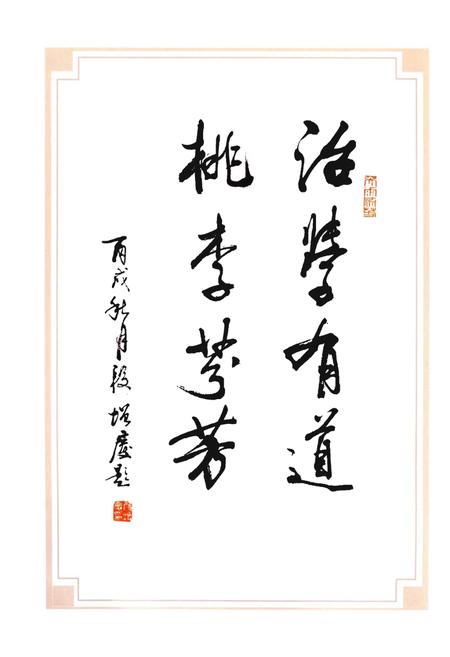 治学有道
桃李芬芳
丙戌秋月段增庆题